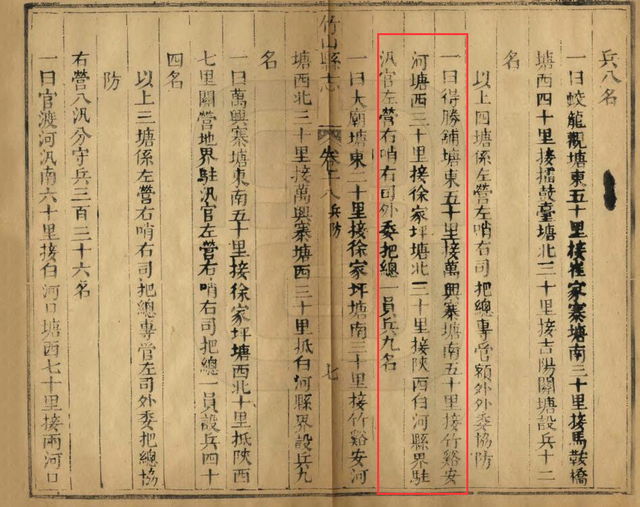 兵八名
一曰蛟龍觀塘東五十里接崔家寨塘南三十里接馬鞍橋
塘西四十里接擂鼓臺塘北三十里接吉陽關塘設兵十二
名
以上四塘係左營左哨右司把總專管額外外委協防
一曰得勝舖塘東五十里接萬興寨塘南五十里接竹谿安
河塘西三十里接徐家坪塘北三十里接陝西白河縣界駐
汛官左營右哨右司外委把總一員兵九名
竹山縣志 卷十八 兵防 七
一曰大廟塘東二十里接徐家坪塘南三十里接竹谿安河
塘西北三十里接萬興寨塘西三十里抵白河縣界設兵九
名
一曰萬興寨塘東南五十里接徐家坪塘西北十里抵陝西
七里關營地界駐汛官左營右哨右司把總一員設兵四十
四名
以上三塘係左營右哨右司把總專管左司外委把總協
防
右營八汛分守兵三百三十六名
一曰官渡河汛南六十里接白河口塘西七十里接兩河口